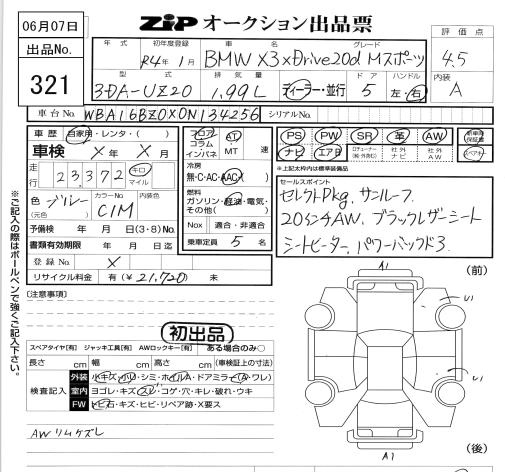 06月07日
ZIP オークション出品票
出品No.
321
年式 初年度登録 車名 グレード
R4年 1月 BMW X3 xDrive20d Mスポーツ
評価点
4.5
型式 排気量 ドア ハンドル
3DA-UZ20 1.99L ディーラー・並行 5 左・右
内装
A
車台No. WBA16BZ0X0N134256 シリアルNo.
車歴 自家用・レンタ・( )
車検 X年 X月
走行 23,372 キロ マイル
色 ブルー (元色) カラーNo. C1M 内装色
予備検 年 月 日(3・8)No.
書類有効期限 年 月 日迄
登録No. X
リサイクル料金 有(¥21,720) 未
フロア コラム インパネ AT MT 速
冷房
無・C・AC・AAC
燃料
ガソリン・軽油・電気・その他( )
Nox 適合・非適合
乗車定員 5 名
PS PW SR 革 AW 新車時保証書
ナビ エアB 社外ナビ 社外AW スペアキー
*上記太枠内は標準装備品
セールスポイント
セレクトPkg. サンルーフ.
20インチAW. ブラックレザーシート
シートヒーター. パワーバックド3
※ご記入の際はボールペンで強くご記入下さい。
(注意事項)
初出品
スペアタイヤ[有] ジャッキ工具[有] AWロックキー[有] ある場合のみ○
長さ cm 幅 cm 高さ cm (車検証上の寸法)
検査記入
外装 小キズ・小凹・シミ・ホイルA・ドアミラー(A・ワレ)
室内 ヨゴレ・キズ・スレ・コゲ・穴・キレ・破れ・ウキ
FW トビ石・キズ・ヒビ・リペア跡・X要ス
AWリムケズレ
A1
(前)
(後)
A1